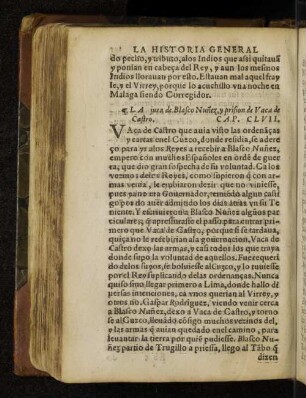 LA HISTORIA GENERAL
do pecito, y tributo, alos Indios que assi quitauā
y ponian en cabeça del Rey, y aun los mesmos
Indios llorauan por esto. Estauan mal aquel fray
le, y el Virrey, porque lo acuchillo vna noche en
Malaga siendo Corregidor.
¶ LA jura de Blasco Nuñez, y prision de Vaca de
Castro. CAP. CLVII.
VAca de Castro que auia visto las ordenāças
y cartas en el Cuzco, donde residia, se adere
ço para yr alos Reyes a recebir a Blasco Nuñez,
empero con muchos Españoles en orden de gue
rra, que dio gran sospecha de su voluntad. Ca los
vezinos de los Reyes, como supieron q̄ con ar-
mas venia, le embiaron dezir que no viniesse,
pues ya no era Gouernador, temiēdo algun casti
go por no auer admitido los dias atras vn su Te
niente. Y escriuieron a Blasco Nuñez algunos par
ticulares, q̄ apresurasse el passo para entrar prime
ro que Vaca de Castro, porque si se tardaua,
quiça no le recebirian ala gouernacion. Vaca de
Castro dexo las armas, y casi todos los que traya
donde supo la voluntad de aquellos. Fue requeri
do de los suyos, se boluiesse al Cuzco, y lo tuuiesse
por el Rey suplicando delas ordenanças. Nunca
quiso sino llegar primero a Lima, donde hallo di
uersas intenciones, ca vnos querian al Virrey, y
otros no. Gaspar Rodriguez, viendo venir cerca
a Blasco Nuñez, dexo a Vaca de Castro, y torno
se al Cuzco, lleuādo cōsigo muchos vezinos del,
y las armas q̄ auian quedado en el camino, para le
uantar la tierra por quiē pudiesse. Blasco Nu-
ñez partio de Trugillo a priessa, llego al Tābo q̄
dizen